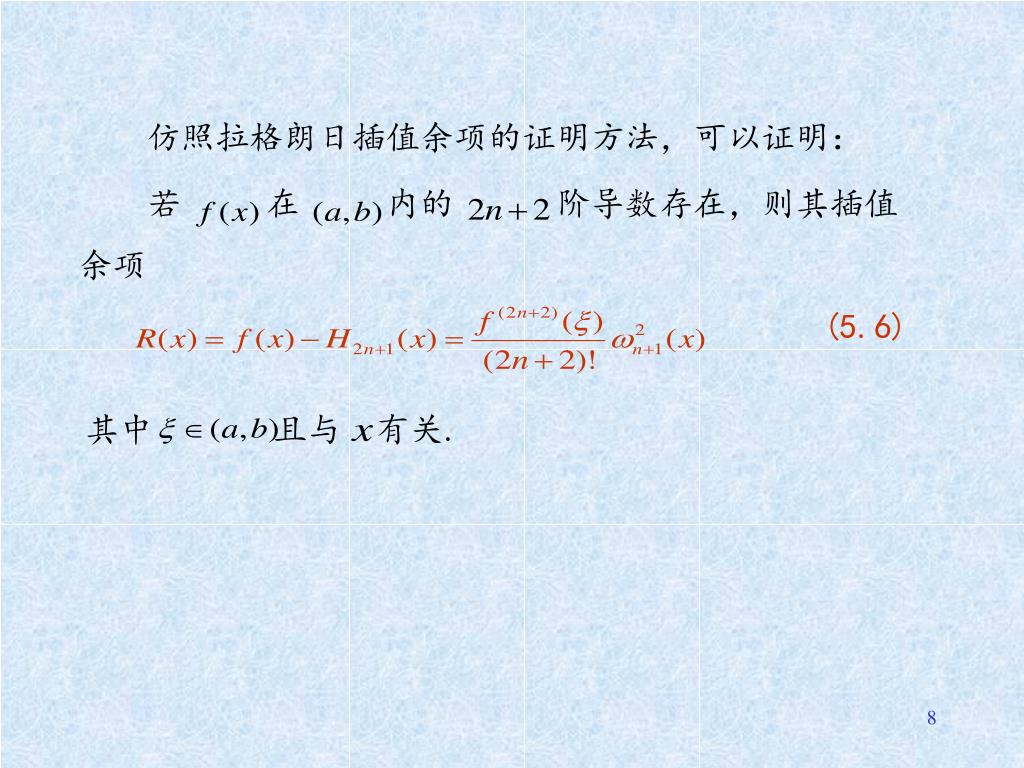 仿照拉格朗日插值余项的证明方法，可以证明：
若 f(x) 在 (a,b) 内的 2n+2 阶导数存在，则其插值
余项
R(x) = f(x) − H_{2n+1}(x) = \frac{f^{(2n+2)}(ξ)}{(2n+2)!} ω_{n+1}^{2}(x) (5.6)
其中 ξ∈(a,b) 且与 x 有关.
8